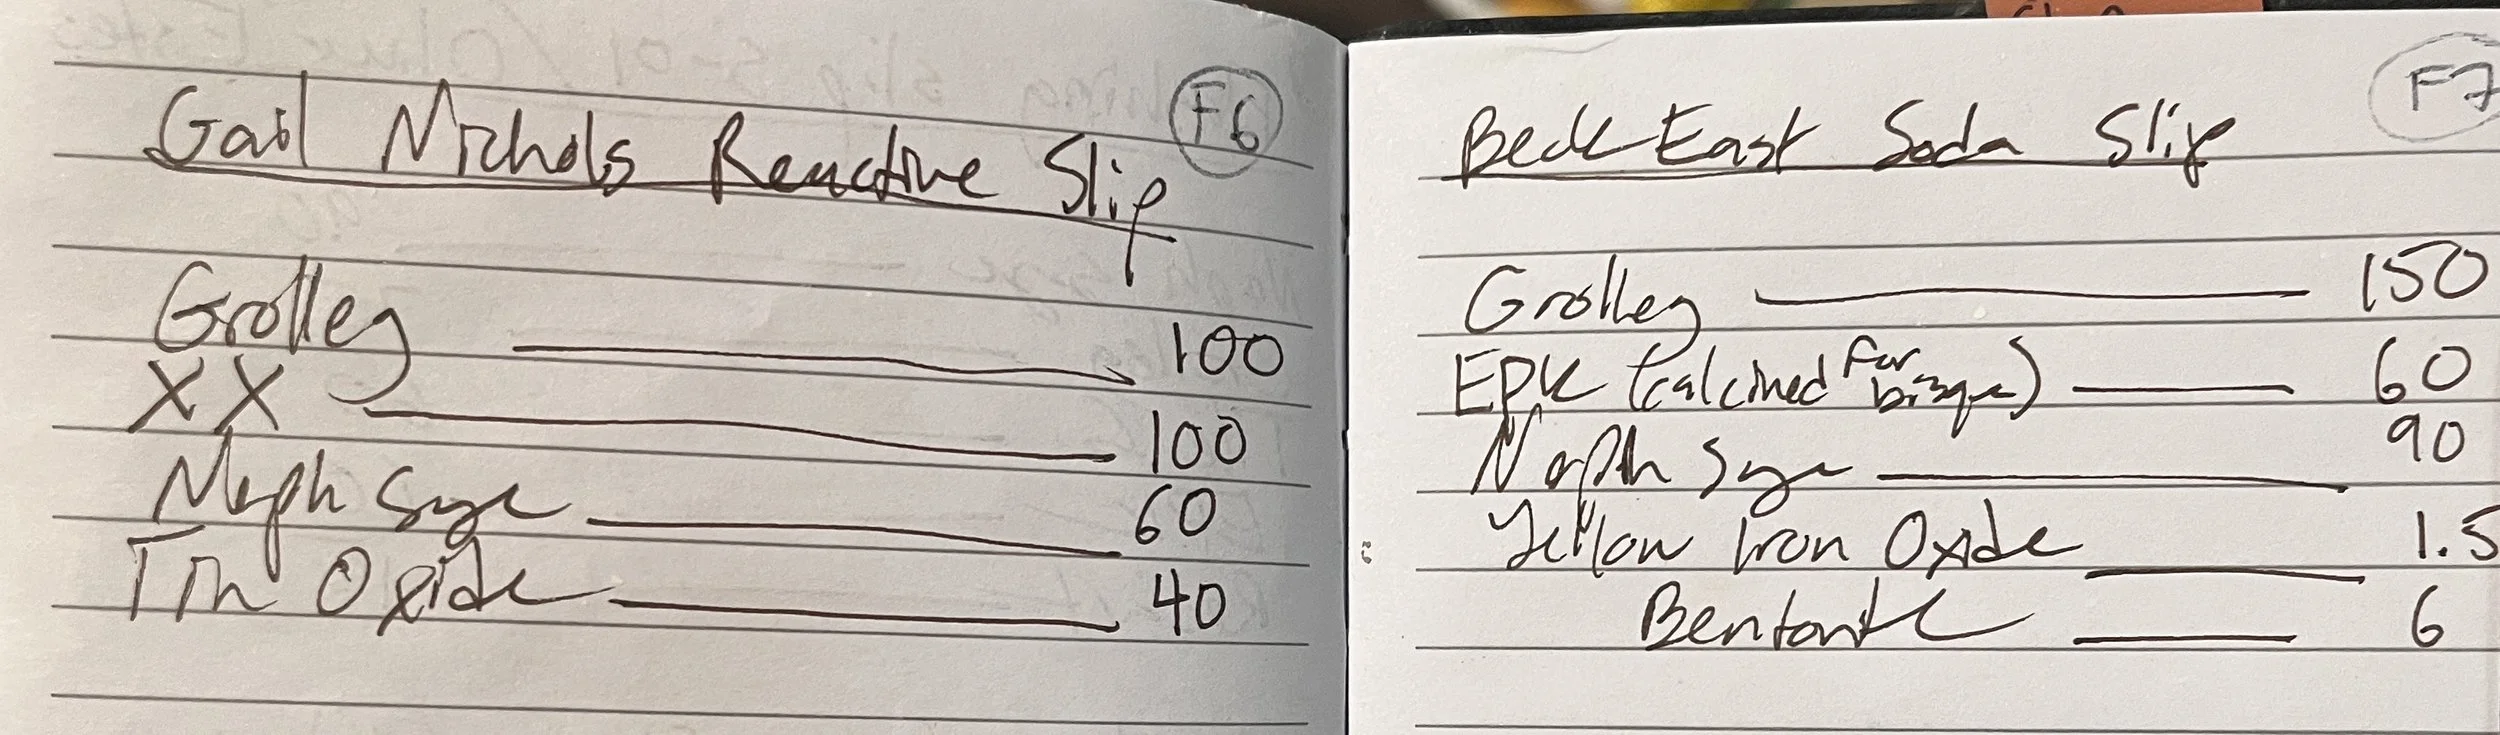 F6
Gail Nichols Reactive Slip
Grolleg 100
XX 100
Neph Sye 60
Tin Oxide 40
F7
Beck East Soda Slip
Grolleg 150
EPK (calcined for bisque) 60
Neph Sye 90
Yellow Iron Oxide 1.5
Bentonite 6